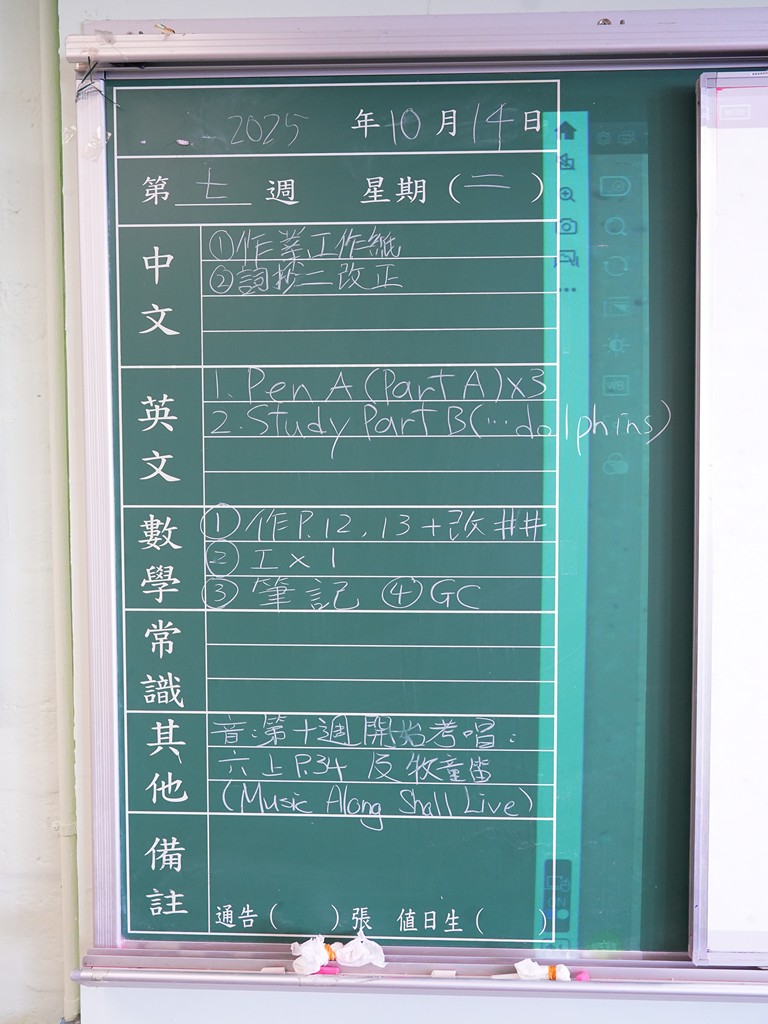 2025 年10月14日
第七週 星期(二)
中文
①作業工作紙
②詞抄二改正
英文
1. Pen A (Part A)x3
2. Study Part B(…dolphins)
數學
① 作P.12, 13+改##
② 工 x 1
③ 筆記 ④ GC
常識
其他
音:第十週開始考唱:
六上P.34 及牧童笛
(Music Along Shall Live)
備註
通告( )張 值日生( )